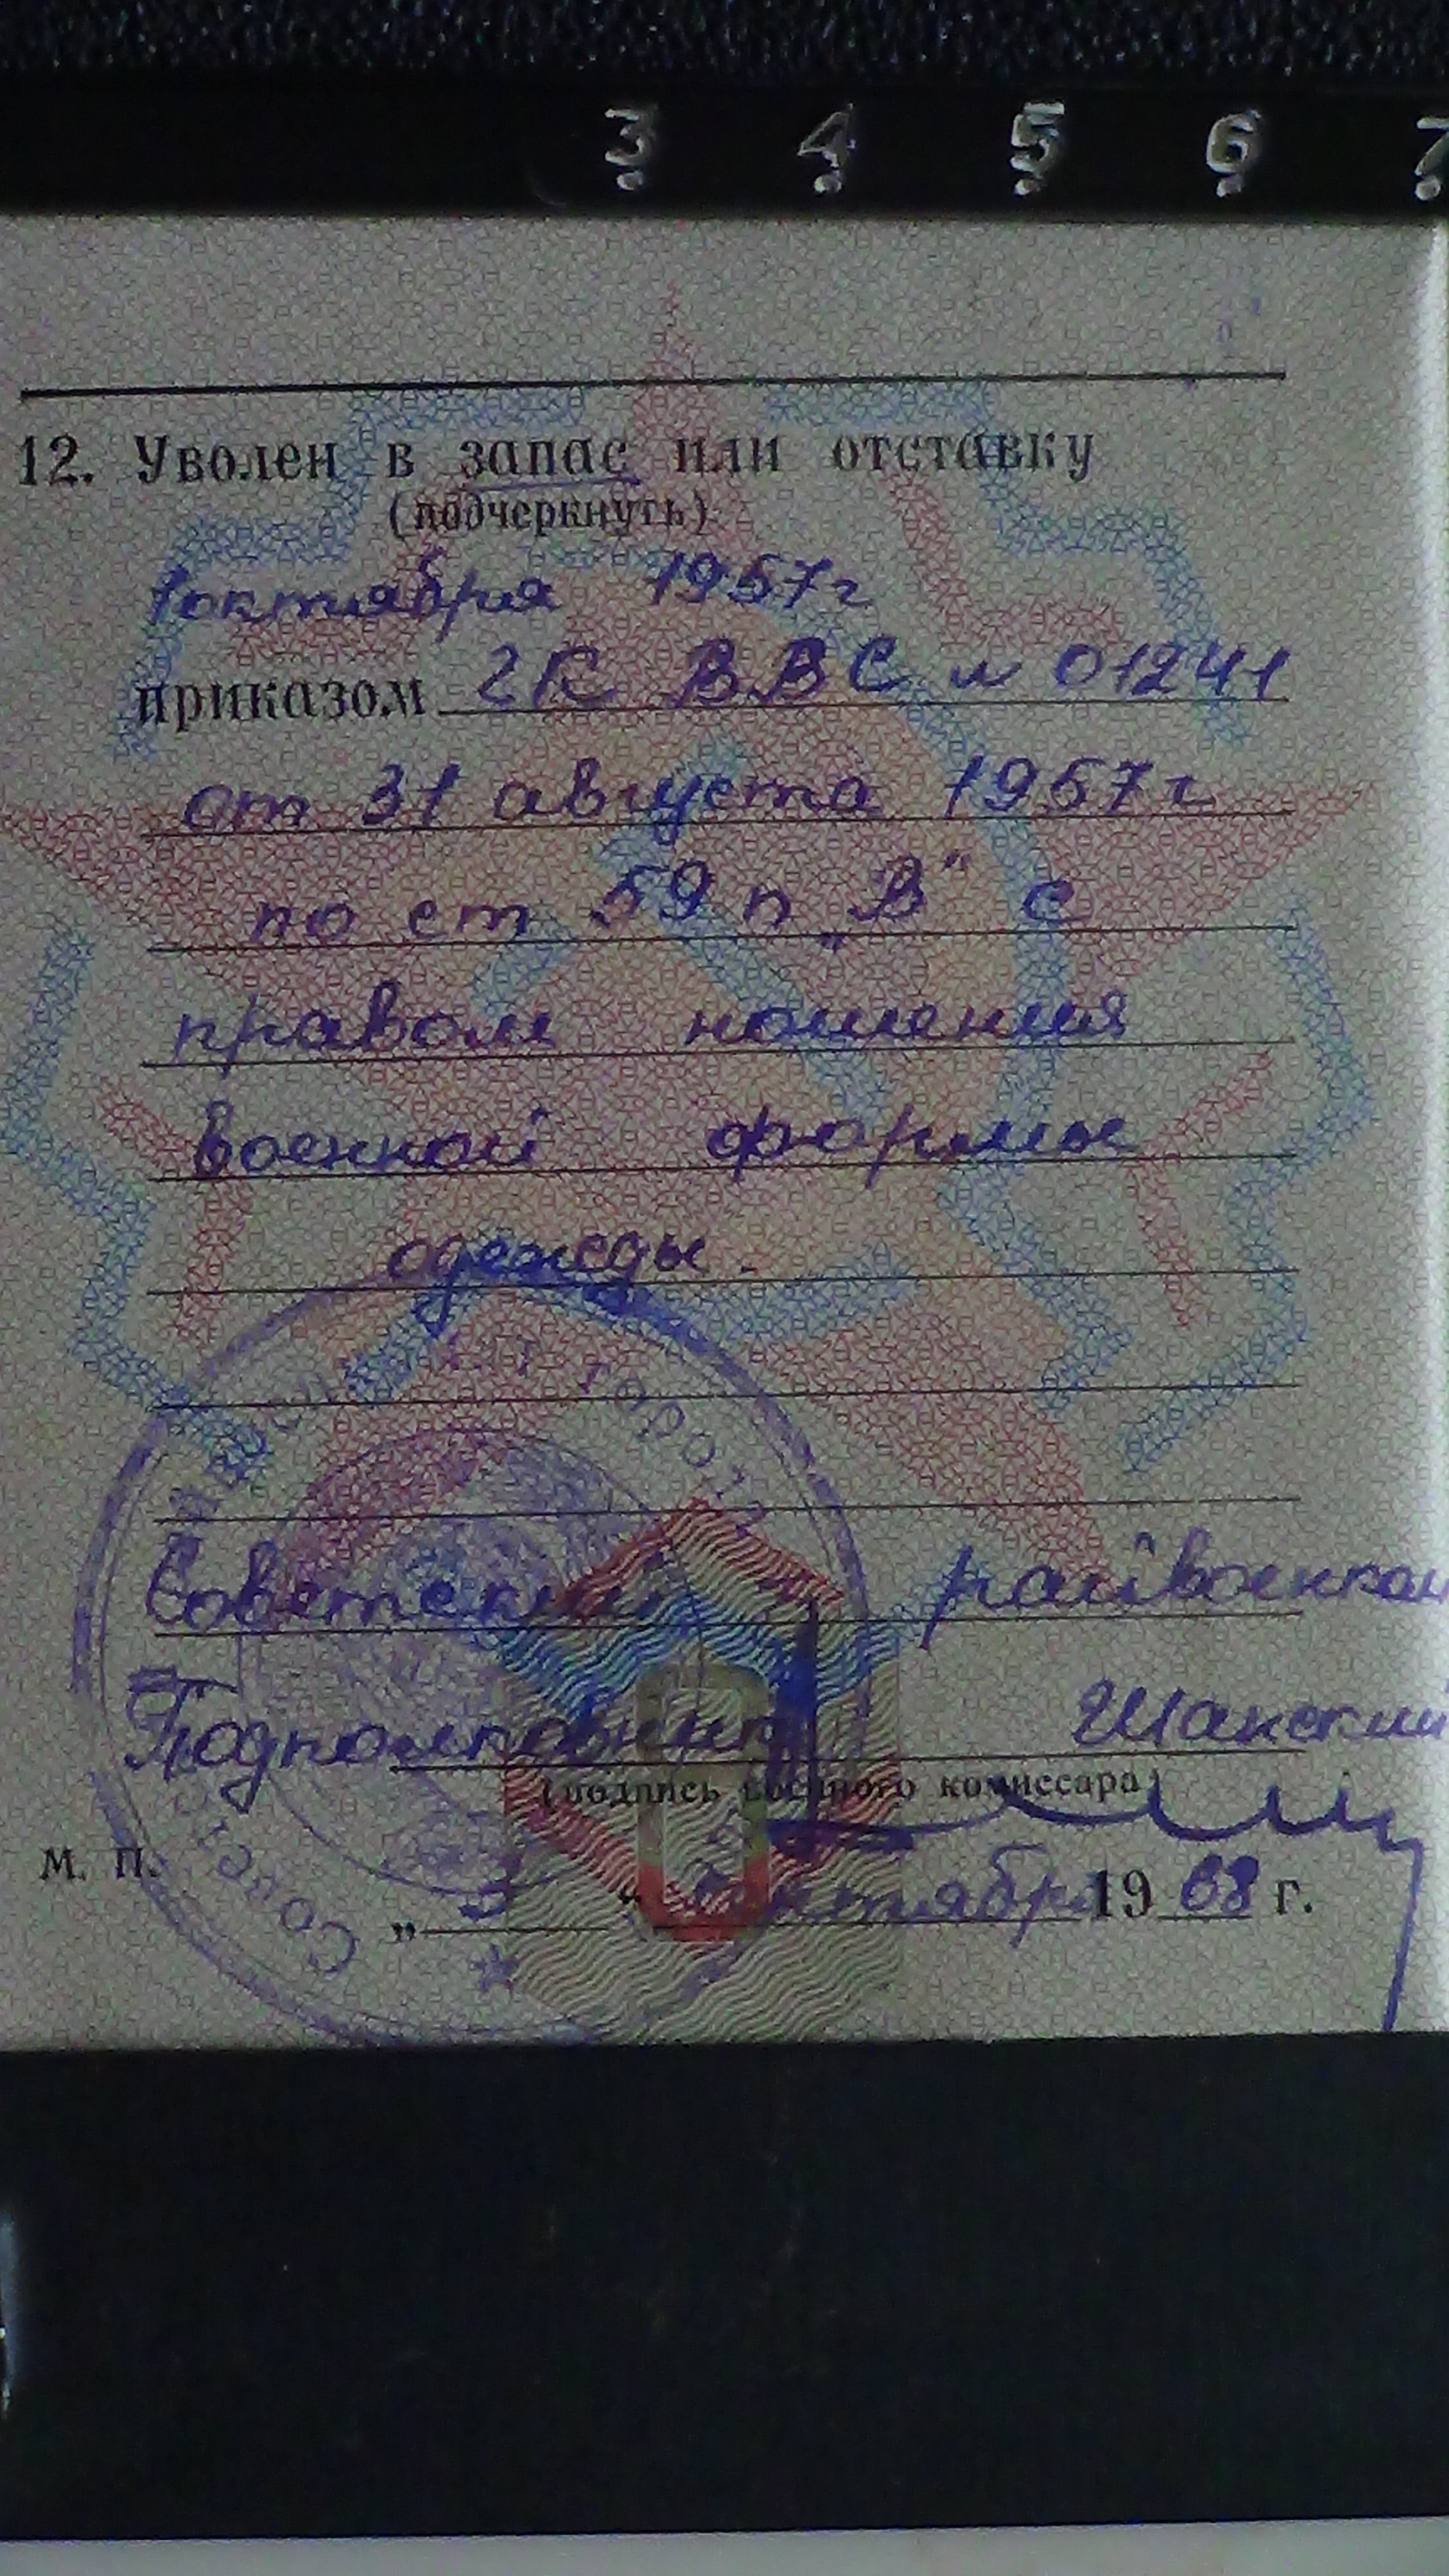 3 4 5 6 7
12. Уволен в запас или отставку
(подчеркнуть)
1 октября 1957 г
приказом ГК ВВС № 01241
от 31 августа 1957 г
по ст 59 п „В" с
правом ношения
военной формы
одежды.
Советский райвоенком
Подполковник Шанский
(подпись военного комиссара)
М. П.
„ 3 " октября 1968 г.